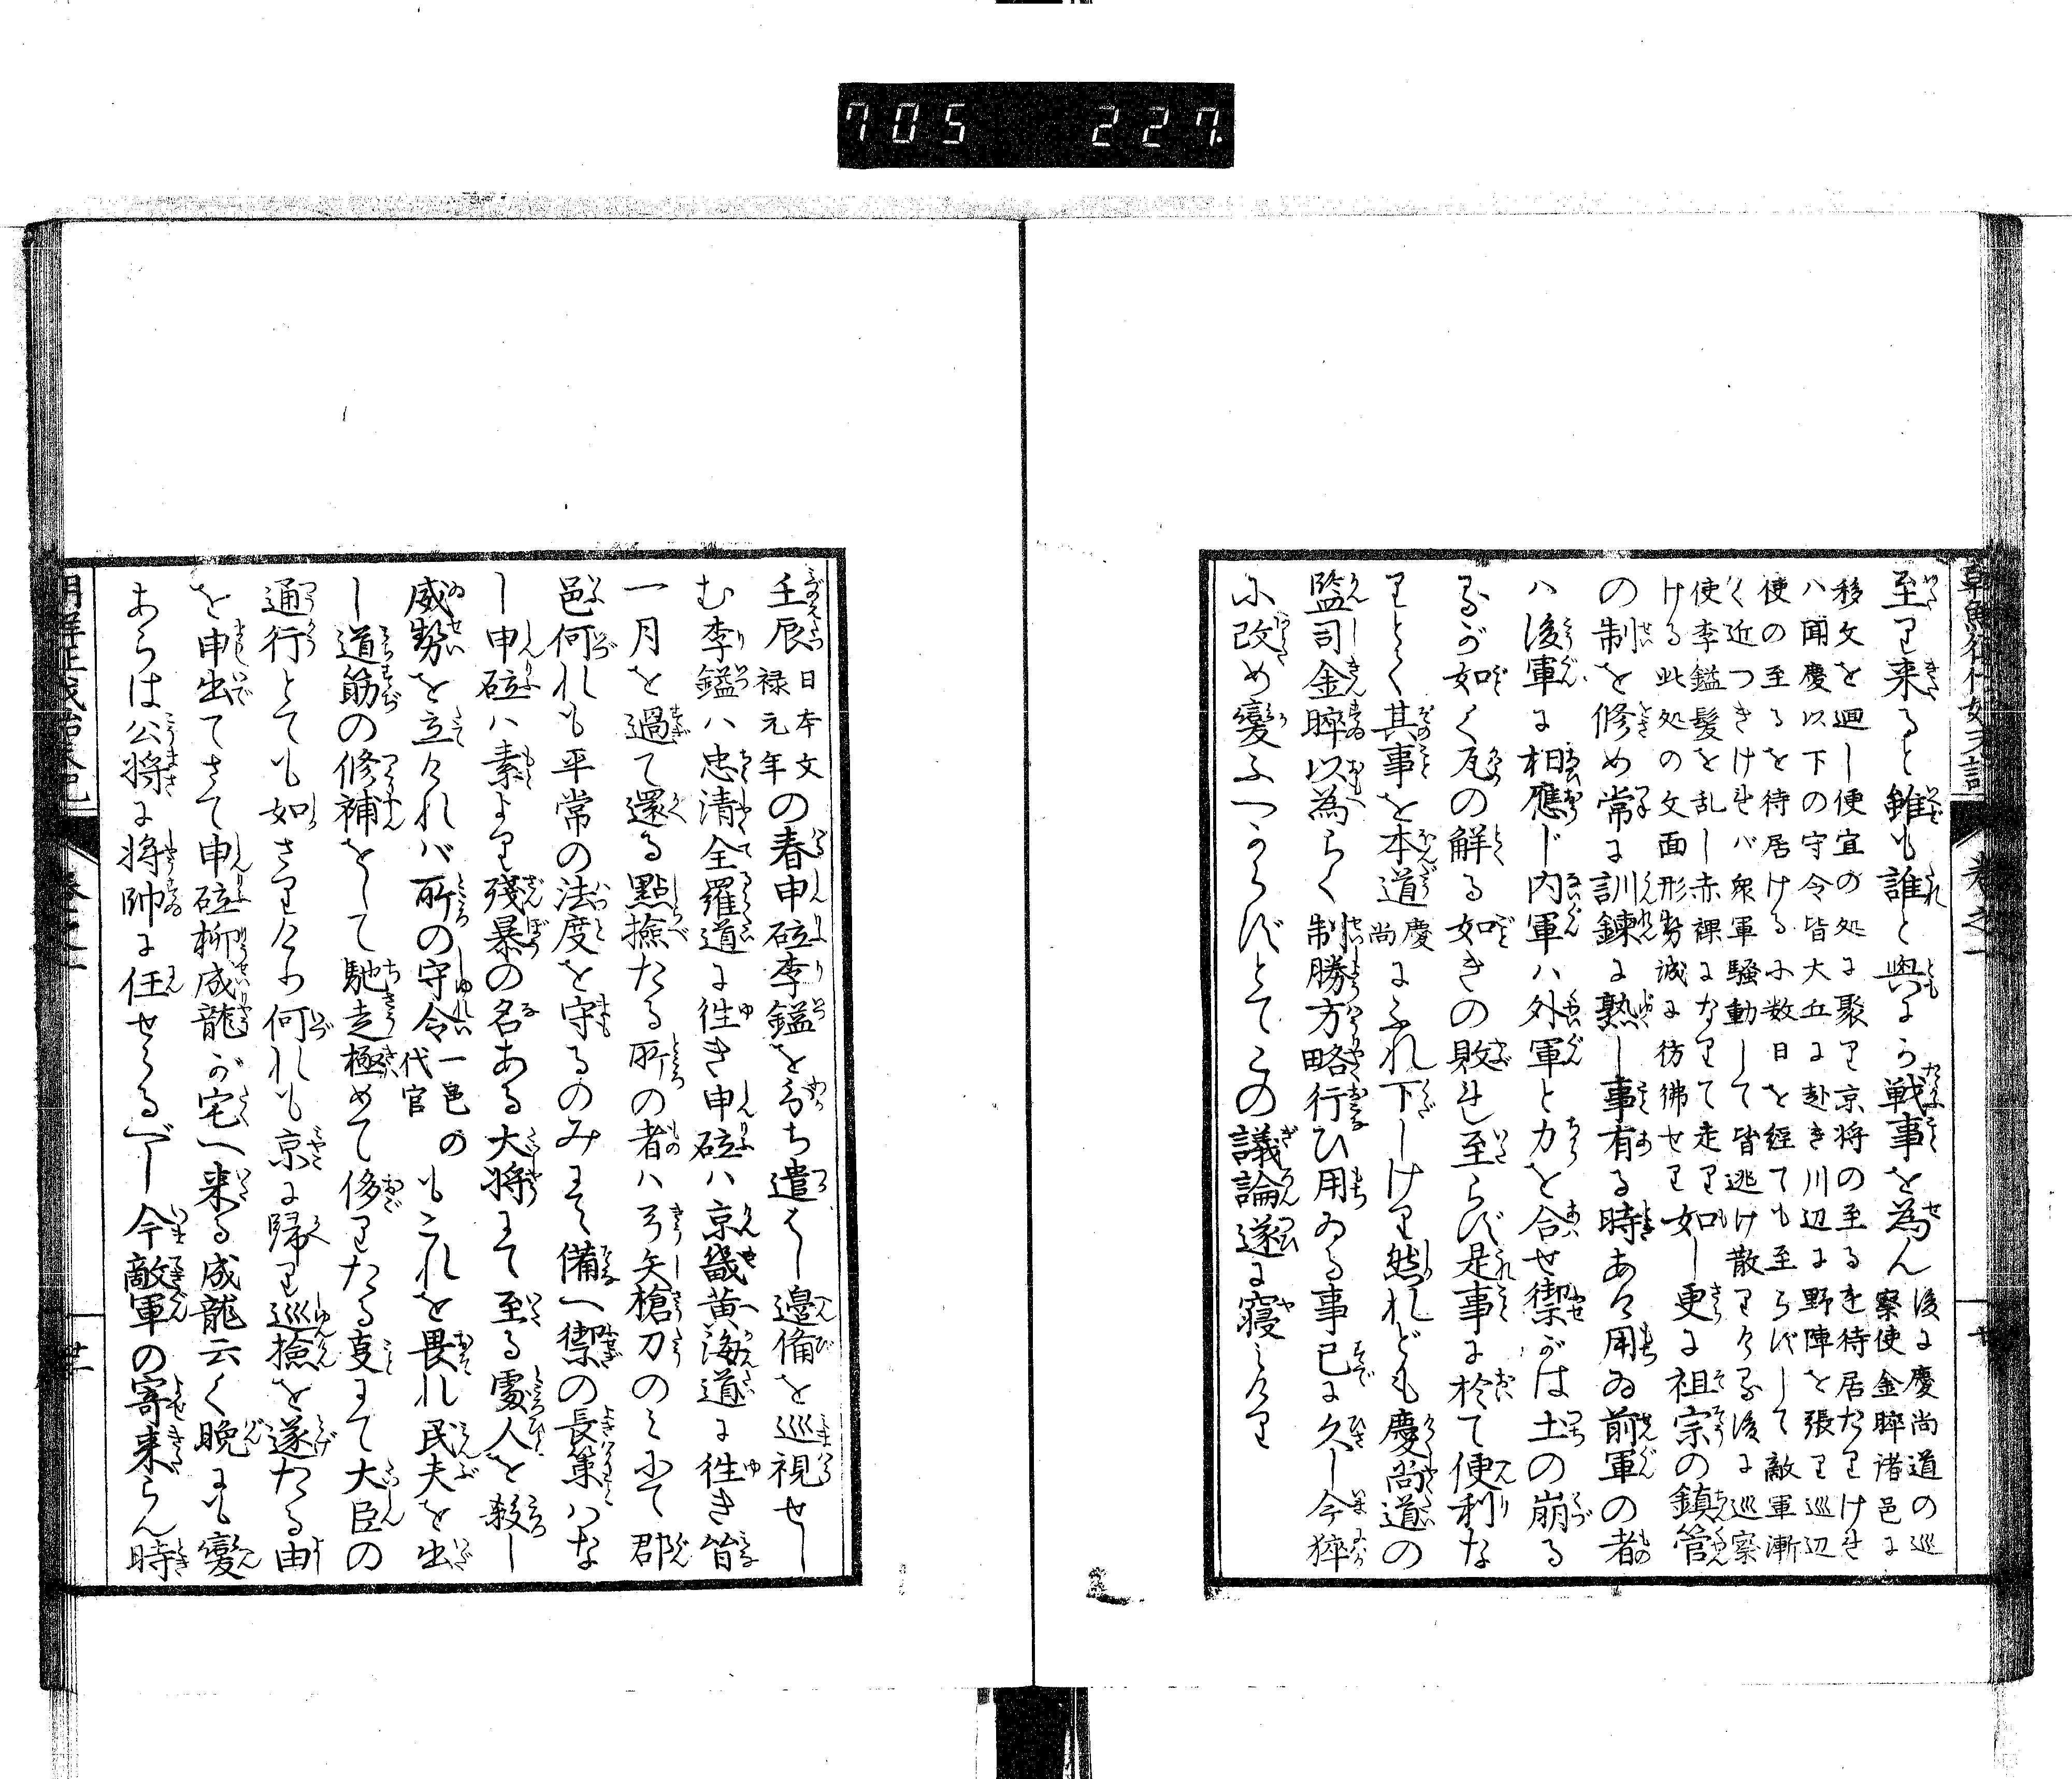 705 227
至り来ると雖も誰と與にか戦事を為ん後に慶尚道の巡
察使金睟諸邑に
移文を廻し便宜の処に聚り京将の至るを待居たりけれ
ハ聞慶以下の守令皆大丘に赴き川辺に野陣を張り巡辺
使の至るを待居けるに数日を経ても至らずして敵軍漸
く近つきけれバ衆軍騒動して皆逃け散りける後に巡察
使李鎰髪を乱し赤裸になりて走り
ける此処の文面形勢誠に彷彿せり如し更に祖宗の鎮管
の制を修め常に訓錬に熟し事有る時あれ用ゐ前軍の者
ハ後軍に相應じ内軍ハ外軍と力を合せ禦がは土の崩る
るが如く瓦の解る如きの敗れ至らず是事に於て便利な
りとく其事を本道慶
尚にふれ下しけり然れども慶尚道の
監司金睟以為らく制勝方略行ひ用ゐる事已に久し今猝
に改め變ふべからずとてこの議論遂に寝にけり
壬辰日本文
禄元年の春申砬李鎰を分ち遣はし邊備を巡視せし
む李鎰ハ忠清全羅道に往き申砬ハ京畿黄海道に往き皆
一月を過て還る點撿たる所の者ハ弓矢槍刀のみにて郡
邑何れも平常の法度を守るのみにて備へ禦の長策ハな
し申砬ハ素より殘暴の名ある大将にて至る處人を殺し
威勢を立けれバ所の守令一邑の
代官もこれを畏れ民夫を出
し道筋の修補をして馳走極めて侈りたる叓にて大臣の
通行とても如さりけり何れも京に歸り巡撿を遂たる由
を申出てさて申砬柳成龍が宅へ来る成龍云く晩にも變
あらは公将に将帥に任せらるべし今敵軍の寄来らん時